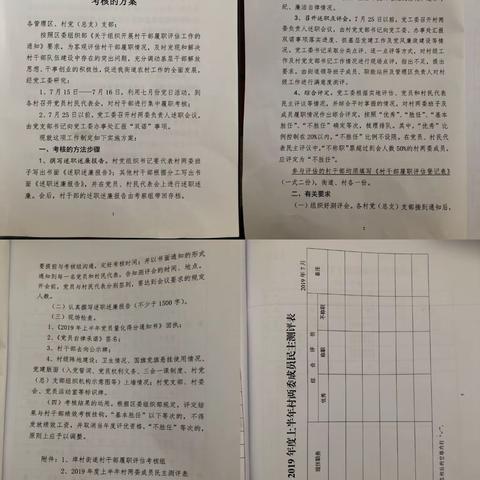 考核的方案
各管理区、村党（总）支部：
按照区委组织部《关于组织开展村干部履职评估工作的
通知》要求，为客观评价村干部履职情况，及时发现和解决
村干部队伍建设中存在的突出问题，充分调动基层干部解放
思想、干事创业的积极性，促进我街道农村工作的全面发展，
经党工委研究：
1、7月15日——7月16日，利用七月份党日活动，到
各村召开党员村民代表会，对村干部进行集中履职考核；
2、7月25日以前，党工委召开村两委负责人述职会议，
由党支部书记向党工委办事处汇报“双诺”事项。
现就这项工作制定如下实施方案：
一、考核的方法步骤
1、撰写述职述廉报告。村党组织书记要代表村两委班
子写出书面《述职述廉报告》；其他村干部根据分工写出书
面《述职述廉报告》，并在党员、村民代表会上进行述职述
廉。会后，村干部的述职述廉报告由考察组带回存档。
1
纪、廉洁自律情况。
3、召开述职点评会。7月25日以前，党工委召开村两
委负责人述职会议，由党支部书记向党工委、办事处汇报
双诺事项落实进度、抓基层党建工作及党风廉政建设等情
况。党工委书记采取分类点评、逐一点评等方式，对村级工
作及村党支部书记工作情况进行现场点评，指出不足，提出
要求。由街道领导班子成员、职能站所及管理区负责人对村
级工作进行满意度测评。
4、综合评定。党工委根据实地评估、党员和村民代表
民主评议等情况，并综合平时掌握的情况，对村两委班子及
成员履职情况作出综合评定，按照“优秀”、“胜任”、“基本
胜任”、“不胜任”确定等次，梳理排队。其中，“优秀”比
例控制在20%以内，“不胜任”比例不设限。在党员、村民代
表民主评议中，“不称职”票超过到会人数50%的村两委成员，
应评定为“不胜任”。
参与评估的村干部均须填写《村干部履职评估登记表》
（一式二份），街道、村各一份。
二、有关要求
（一）组织好测评会。各村党（总）支部接到通知后，
要提前与考核组沟通，定好考核时间；并以书面通知的形式
通知到每一名党员和村民代表，告知测评会的时间、地点。
会前，党员与村民代表分别签到，要达到会议要求的规定
人数。
（二）认真撰写述职述廉报告（不少于1500字）。
（三）现场检查。
1、《2019年上半年党员量化得分通知书》回执；
2、《党员自律承诺》签名；
3、村干部去向公示牌；
4、村级阵地建设：卫生情况、国旗党旗悬挂使用情况、
党建版面（入党誓词、党员权利义务、三会一课制度、村党
（总）支部组织机构示意图等）上墙情况；村党支部、村委
会、党员活动室等标识牌。
（四）考核结果的运用。根据区委组织部规定，评定结
果与村干部绩效考核挂钩，“基本胜任”以下等次的，不得
发放绩效工资，并取消当年度评优资格。“不胜任”等次的，
原则上应予以调整。
附件：1、埠村街道村干部履职评估考核组
2、2019年度上半年村两委成员民主测评表
2019年度上半年村两委成员民主测评表
2019年7月
现任职务
综 合 评 价
优秀
称职
不称职
备注